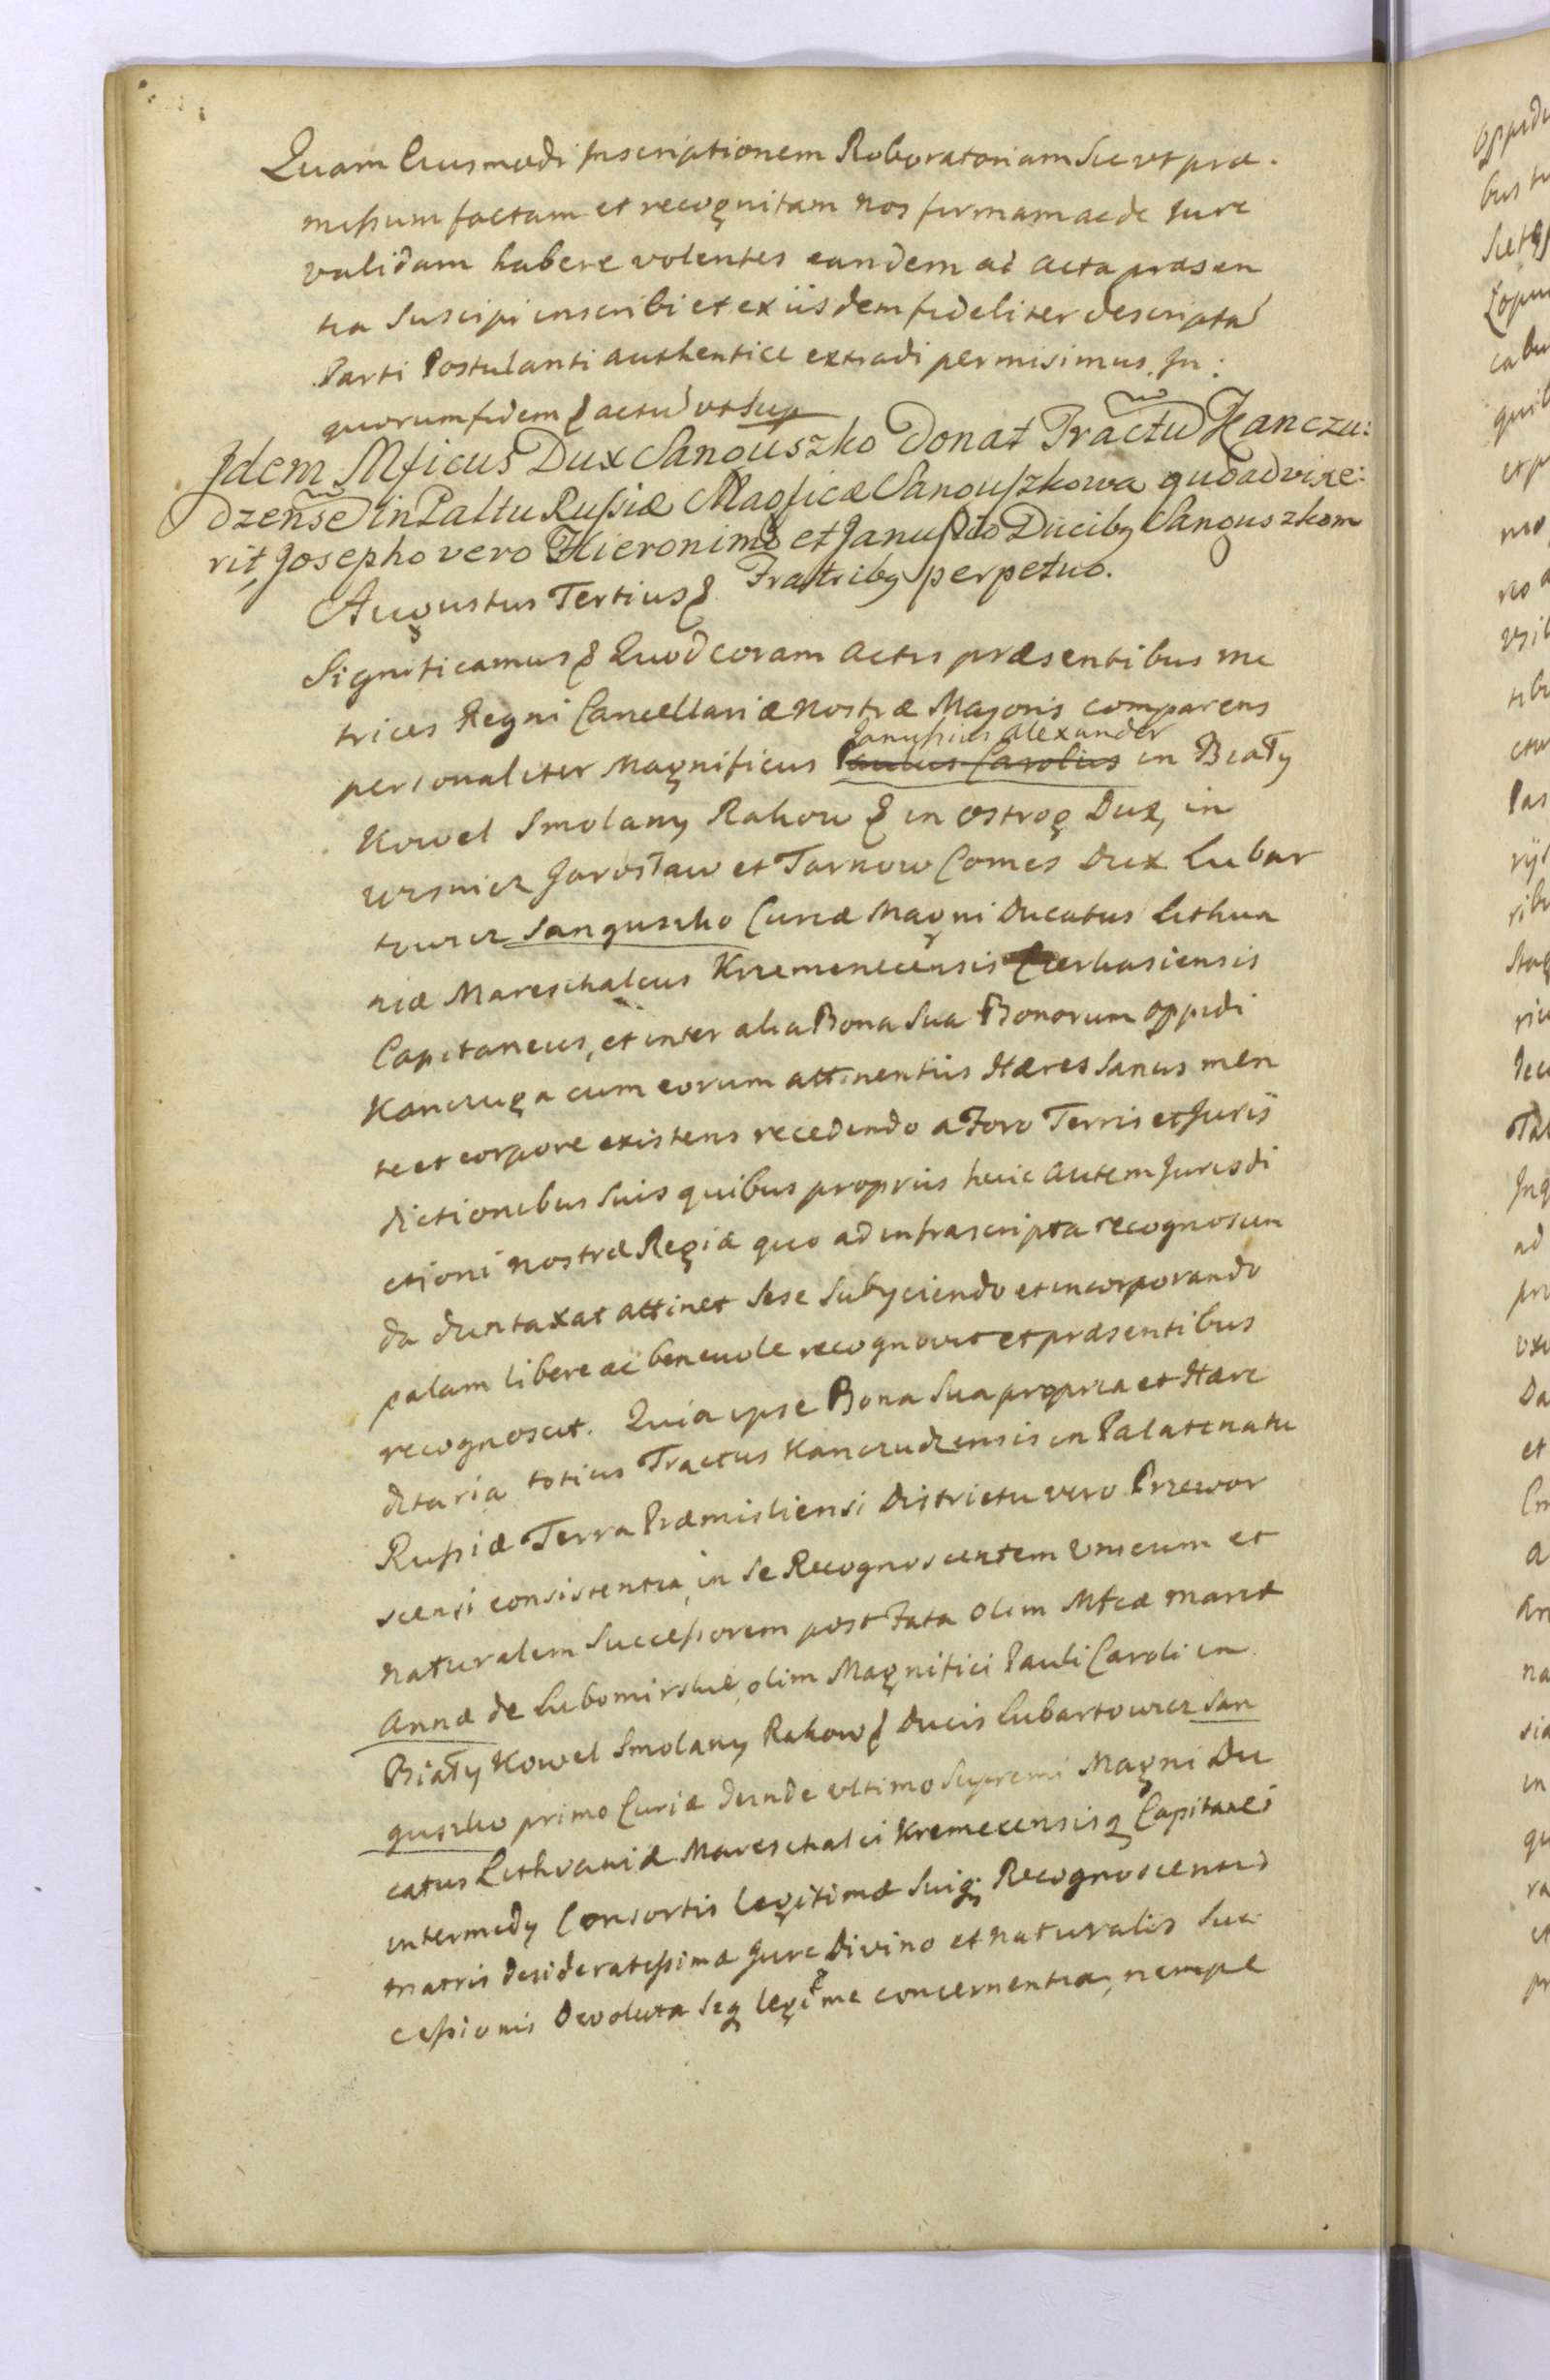 Quam Eiusmodi Inscriptionem Roboratoriam Sic ut præ.
missum factam et recognitam nos firmam ac de Jure
validam habere volentes eandem ad acta præsen
tia Suscipi inscribi et ex iisdem fideliter descriptã
Parti Postulanti authentice extradi permisimus. In:
quorum fidem & actũ ut Sup
Idem Mficus Dux Sanguszko Donat Tractũ Kanczu:
dzense in Paltu Russiæ Magficæ Sanguszkowa quoad vixe:
rit, Josepho vero Hieronimo et Janussio Ducibq Sanguszkom
Fratribq perpetuo.
Augustus Tertius &
Significamus & Quod coram Actis præsentibus me
trices Regni Cancellariæ nostræ Majoris comparens
Janussius Alexander
personaliter Magnificus Paulus Carolius in Biały
Kowel Smolany Rakow & in Ostrog Dux, in
Wisnicz Jarosław et Tarnow Comes Dux Lubar
towicz Sanguszko Curiæ Magni Ducatus Lithua
niæ Mareschalcus Krzemenecensis Czerkasiensis
Capitaneus, et inter alia Bona Sua Bonorum Oppidi
Kanczuga cum eorum attinentiis Hæres Sanus men
te et corpore existens recedendo a Foro Terris et Juris
dictionibus Suis quibus propriis huic autem Jurisdi
ctioni nostræ Regiæ quo ad infrascripta recognoscen
da duntaxat attinet sese Subyciendo et incorporando
palam libere ac benevole recognovit et præsentibus
recognoscit. Quia ipse Bona Sua propria et Hære
ditaria totius Tractus Kanczudzensis in Palatinatu
Russiæ Terra Præmisliensi Districtu vero Przewor
scensi consistentia, in Se Recognoscentem Unicum et
naturalem Successorem post Fata olim Mfcæ Mariæ
Annæ de Lubomirskie, olim Magnifici Pauli Caroli in
Biały Kowel Smolany Rakow & Ducis Lubartowicz San
guszko primo Curiæ deinde ultimo Supremi Magni Du
catus Lithvaniæ Mareschalci Kremecensisq Capitanei
intermedy Consortis legitimæ Suiq: Recognoscentis
matris desideratissimæ Jure Divino et naturalis Suc
cessionis Devoluta Seq legi͂me concernentia, nempe